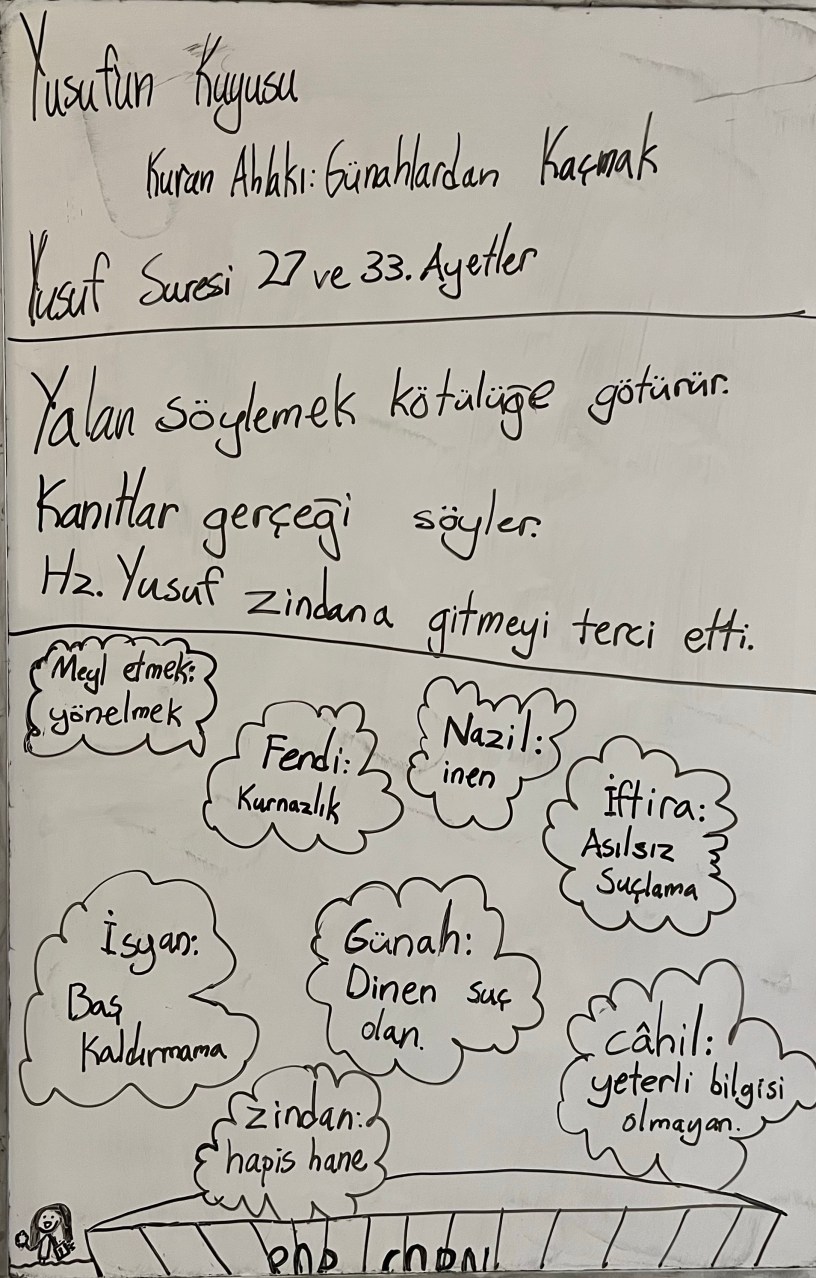 Yusufun Kuyusu
Kuran Ahlakı: Günahlardan Kaçmak
Yusuf Suresi 27 ve 33. Ayetler
Yalan söylemek kötülüğe götürür.
Kanıtlar gerçeği söyler.
Hz. Yusuf zindana gitmeyi terci etti.
Meyl etmek:
yönelmek
Fendi:
Kurnazlık
Nazil:
inen
İftira:
Asılsız
Suçlama
İsyan:
Baş
Kaldırmama
Günah:
Dinen suç
olan.
câhil:
yeterli bilgisi
olmayan.
zindan:
hapis hane